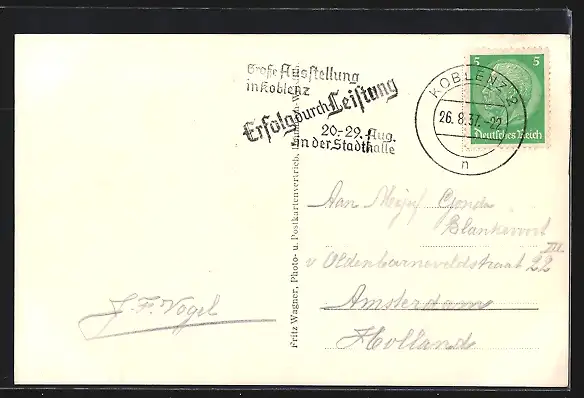 Große Ausstellung
in Koblenz
Erfolg durch Leistung
20.-29. Aug.
in der Stadthalle
KOBLENZ 2
26.8.37.-22
n
5 5
Deutsches Reich
Fritz Wagner, Photo- u. Postkartenvertrieb,
Aan Mejuf Gonda
Blankevoort
v Oldenbarneveldstraat 22 III
Amsterdam
Holland
J. F. Vogel